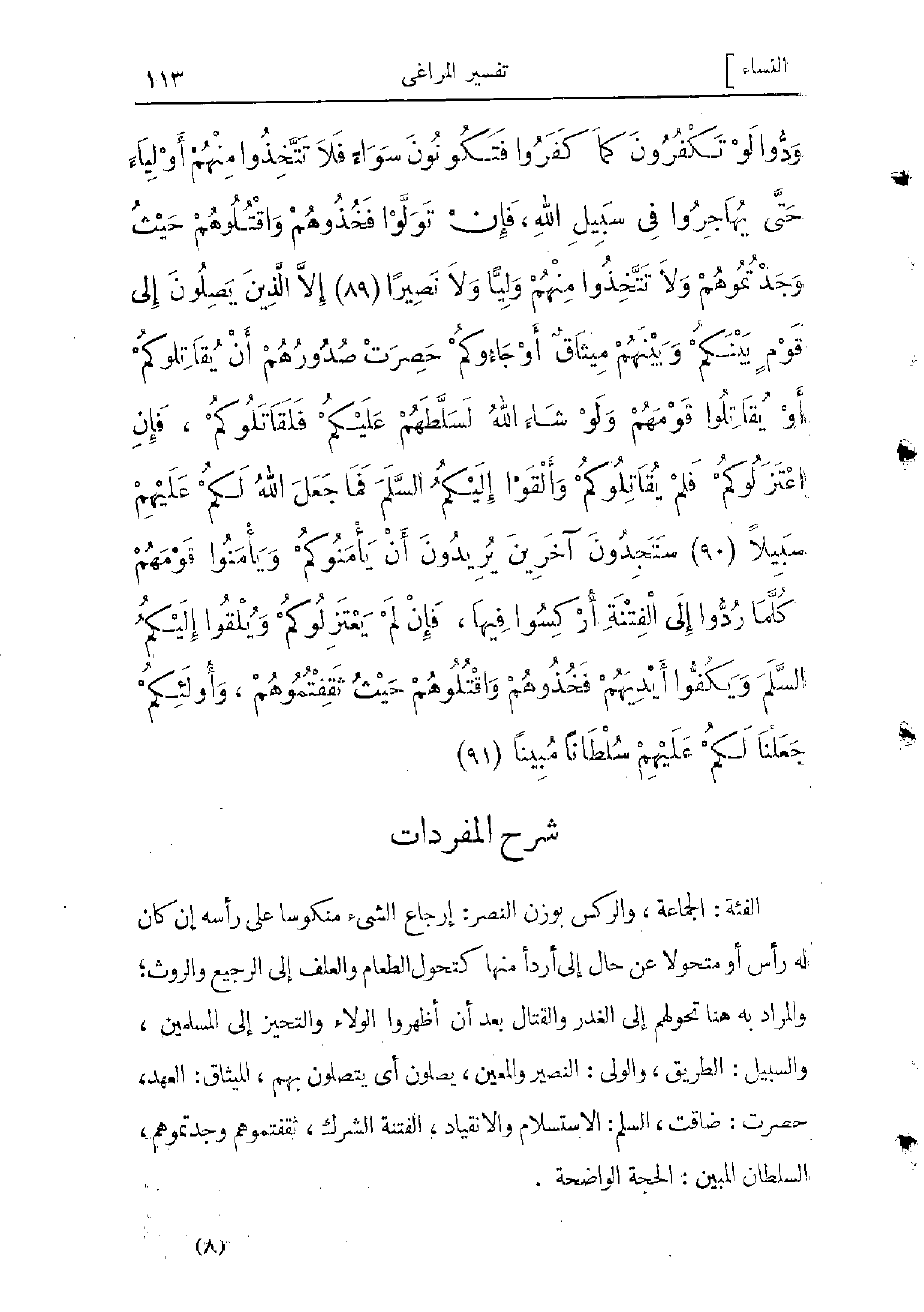 النساء ]
تفسير المراغى
١١٣
وَدُّوا لَوْ تَكْفُرُونَ كَمَا كَفَرُوا فَتَكُونُونَ سَوَاءً فَلَا تَتَّخِذُوا مِنْهُمْ أَوْلِيَاءَ
حَتَّى يُهَاجِرُوا فِى سَبِيلِ اللهِ، فَإِنْ تَوَلَّوْا فَخُذُوهُمْ وَاقْتُلُوهُمْ حَيْثُ
وَجَدْتُمُوهُمْ وَلَا تَتَّخِذُوا مِنْهُمْ وَلِيًّا وَلَا نَصِيرًا (٨٩) إِلاَّ الَّذِينَ يَصِلُونَ إِلى
قَوْمٍ بَيْنَكُمْ وَبَيْنَهُمْ مِيثَاقٌ أَوْ جَاءُوكُمْ حَصِرَتْ صُدُورُهُمْ أَنْ يُقَاتِلُوكُمْ
أَوْ يُقَاتِلُوا قَوْمَهُمْ وَلَوْ شَاءَ اللهُ لَسَلَّطَهُمْ عَلَيْكُمْ فَلَقَاتَلُوكُمْ ، فَإِنِ
اعْتَزَلُوكُمْ فَلَمْ يُقَاتِلُوكُمْ وَأَلْقَوْا إِلَيْكُمُ السَّلَمَ فَمَا جَعَلَ اللهُ لَكُمْ عَلَيْهِمْ
سَبِيلاً (٩٠) سَتَجِدُونَ آخَرِينَ يُرِيدُونَ أَنْ يَأْمَنُوكُمْ وَيَأْمَنُوا قَوْمَهُمْ
كُلَّمَا رُدُّوا إِلَى الْفِتْنَةِ أُرْكِسُوا فِيهَا، فَإِنْ لَمْ يَعْتَزِلُوكُمْ وَيُلْقُوا إِلَيْكُمُ
السَّلَمَ وَيَكُفُّوا أَيْدِيَهُمْ فَخُذُوهُمْ وَاقْتُلُوهُمْ حَيْثُ ثَقِفْتُمُوهُمْ ، وَأُولَئِكُمْ
جَعَلْنَا لَكُمْ عَلَيْهِمْ سُلْطَانًا مُبِينًا (٩١)
شرح المفردات
الفئة : الجماعة ، والركس بوزن النصر: إرجاع الشىء منكوسا على رأسه إن كان
له رأس أو متحولا عن حال إلى أردأ منها كتحول الطعام والعلف إلى الرجيع والروث؛
والمراد به هنا تحولهم إلى الغدر والقتال بعد أن أظهروا الولاء والتحيز إلى المسلمين ،
والسبيل : الطريق ، والولى : النصير والمعين، يصلون أى يتصلون بهم ، الميثاق: العهد،
حصرت : ضاقت ، السلم: الاستسلام والانقياد ، الفتنة الشرك ، ثقفتموهم وجدتموهم،
السلطان المبين : الحجة الواضحة .
(٨)